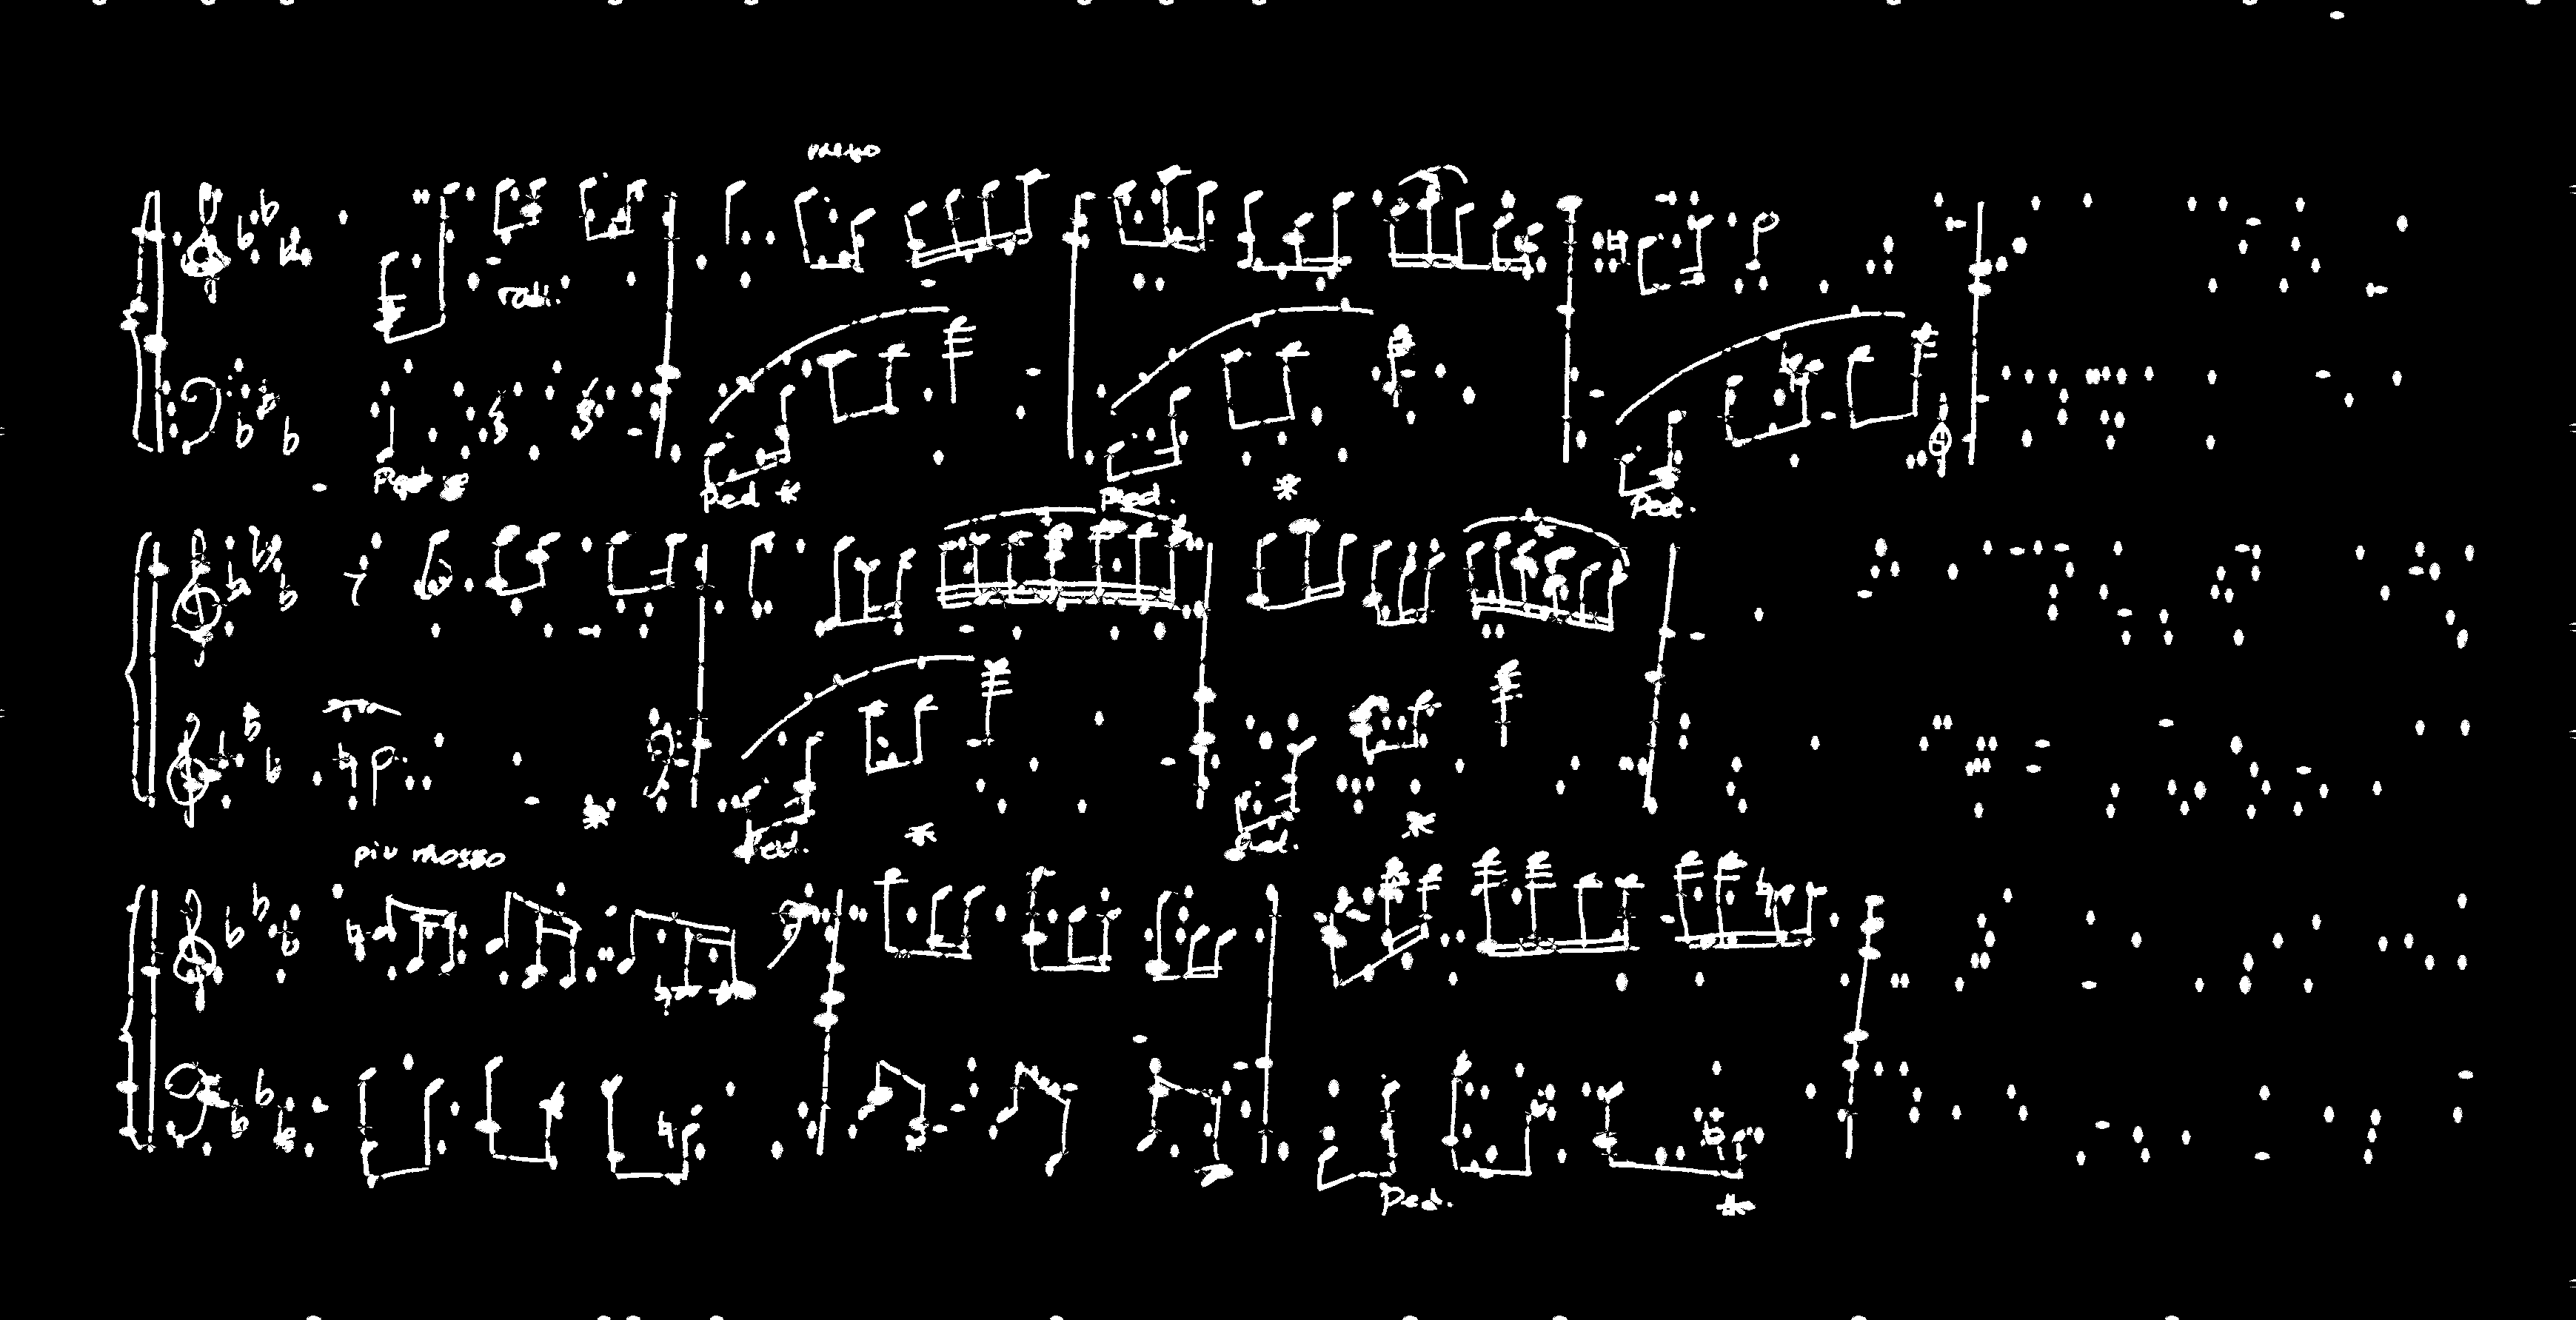 ralli.
Ped
Ped
Ped.
Ped.
Ped.
Ped.
piu mosso
Ped.